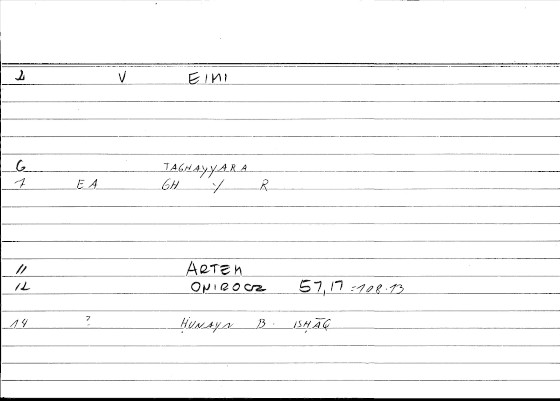 1 V EIMI
6 TAGHAYYARA
7 EA GH Y R
11 ARTEM
12 ONIROCR 57,17 = 108.13
14 ? ḤUNAYN B. ISḤĀQ